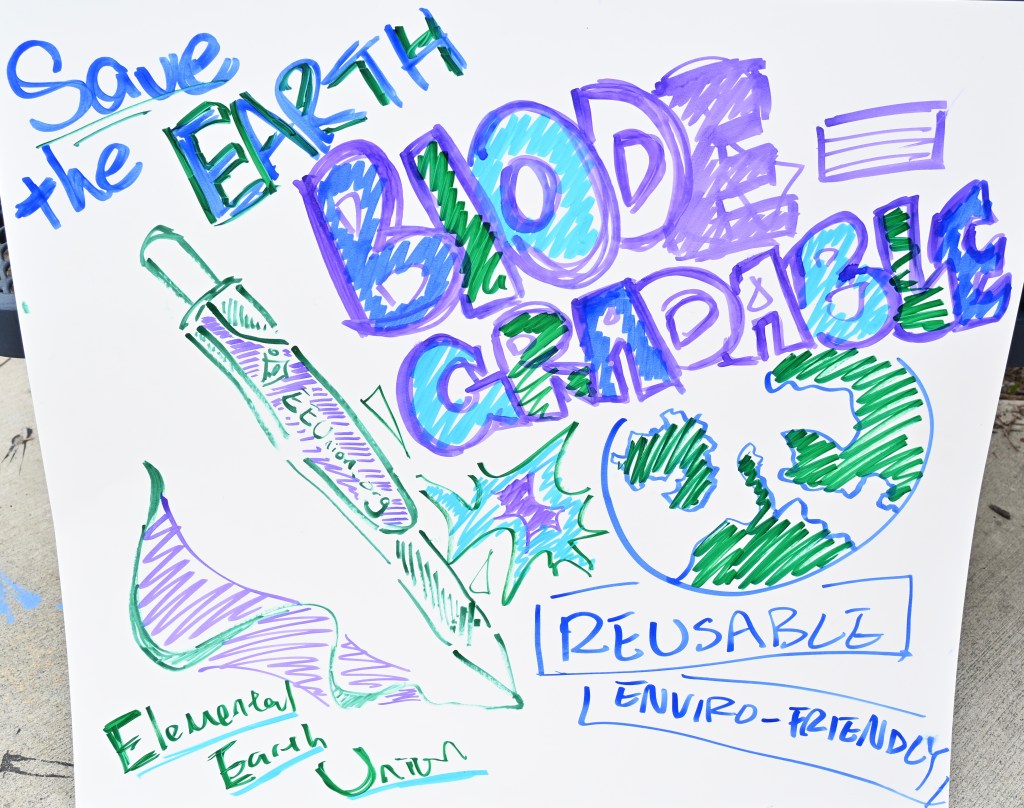 Save
the EARTH
BIODE
GRADABLE
EEUnion.org
REUSABLE
ENVIRO-FRIENDLY
Elemental
Earth
Union